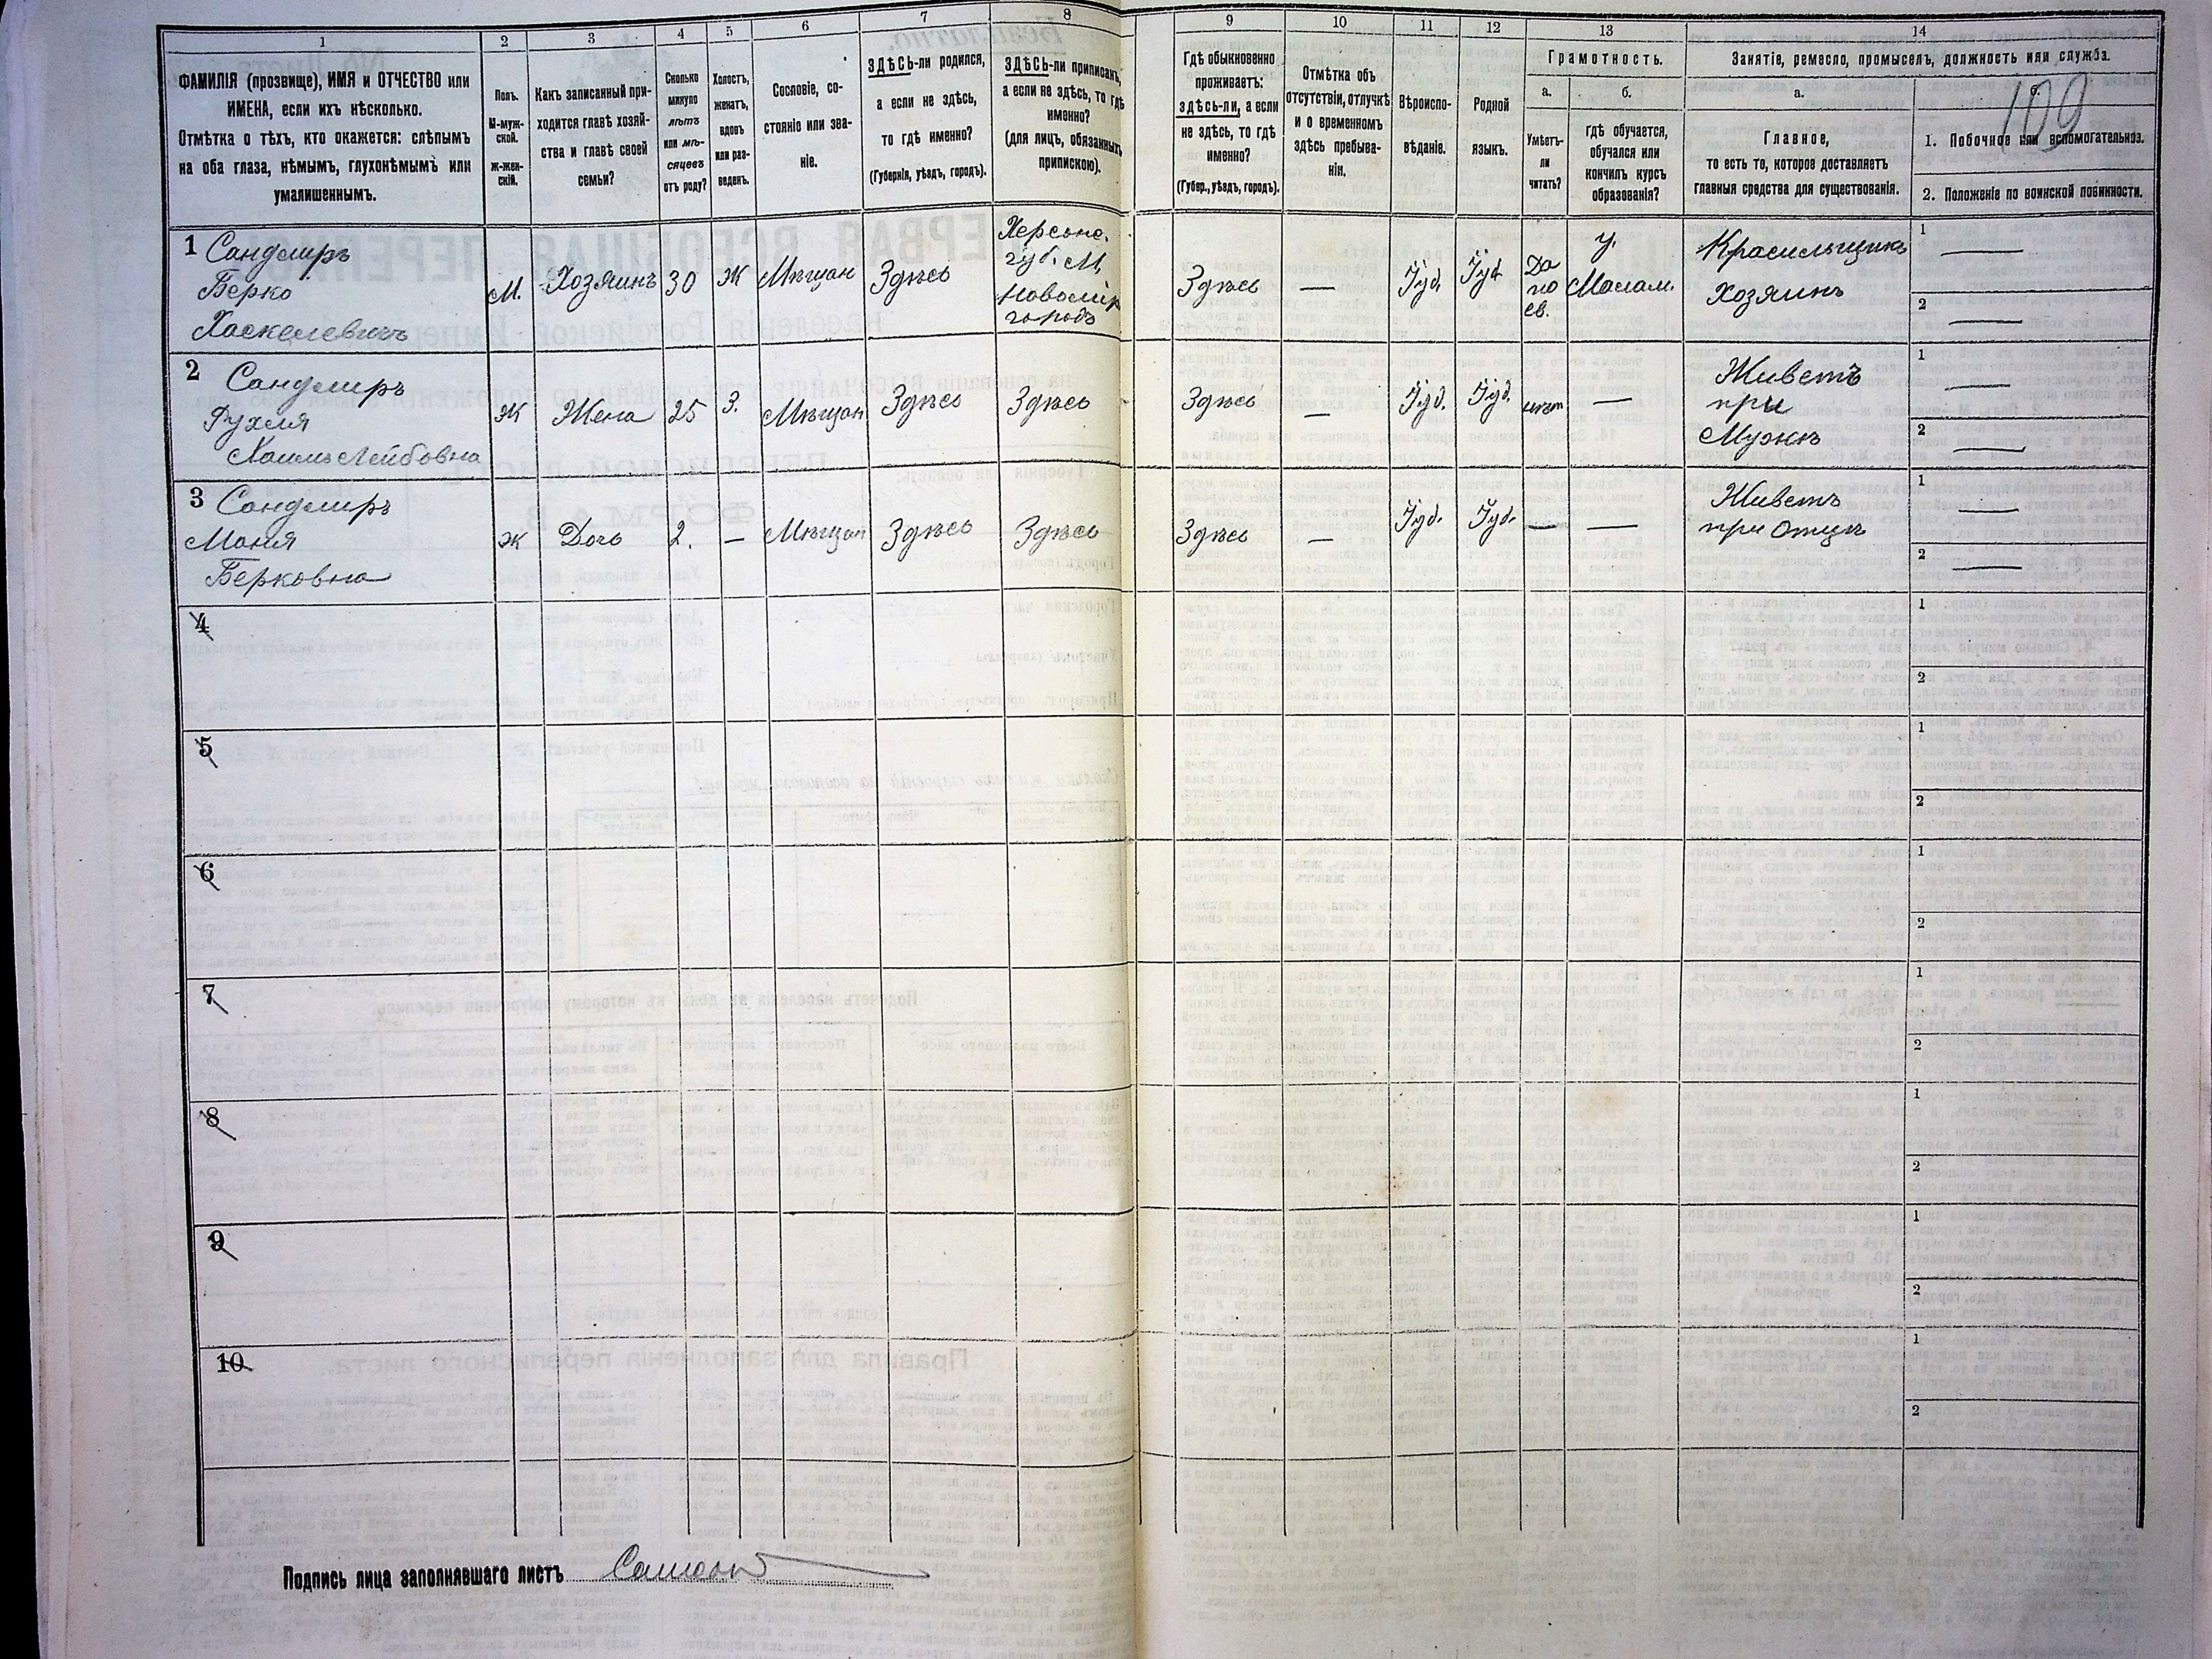 1
2
3
4
5
6
7
8
9
10
11
12
13
14
ФАМИЛІЯ (прозвище), ИМЯ и ОТЧЕСТВО или
ИМЕНА, если ихъ нѣсколько.
Отмѣтка о тѣхъ, кто окажется: слѣпымъ
на оба глаза, нѣмымъ, глухонѣмымъ или
умалишеннымъ.
Полъ.
М-муж-
ской.
Ж-жен-
скій.
Какъ записанный при-
ходится главѣ хозяй-
ства и главѣ своей
семьи?
Сколько
минуло
лѣтъ
или мѣ-
сяцевъ
отъ роду?
Холостъ,
женатъ,
вдовъ
или раз-
веденъ.
Сословіе, со-
стояніе или зва-
ніе.
ЗДѢСЬ-ли родился,
а если не здѣсь,
то гдѣ именно?
(Губернія, уѣздъ, городъ).
ЗДѢСЬ-ли приписанъ,
а если не здѣсь, то гдѣ
именно?
(для лицъ, обязанныхъ
припискою).
Гдѣ обыкновенно
проживаетъ:
здѣсь-ли, а если
не здѣсь, то гдѣ
именно?
(Губер., уѣздъ, городъ).
Отмѣтка объ
отсутствіи, отлучкѣ
и о временномъ
здѣсь пребыва-
ніи.
Вѣроиспо-
вѣданіе.
Родной
языкъ.
Грамотность.
а.
Умѣетъ-
ли
читать?
б.
гдѣ обучается,
обучался или
кончилъ курсъ
образованія?
Занятіе, ремесло, промыселъ, должность или служба.
109
а.
Главное,
то есть то, которое доставляетъ
главныя средства для существованія.
б.
1. Побочное или вспомогательное.
2. Положеніе по воинской повинности.
1 Сандлиръ
Берко
Хаскелевичъ
М.
Хозяинъ
30
Ж
Мѣщан
Здѣсь
Херсонс.
губ. М.
Новомир
городъ
Здѣсь
—
Іуд.
Іуд
Да
по
ев.
у
Малам.
Красильщикъ
Хозяинъ
1 —
2 —
2 Сандлиръ
Рухля
Хаимъ Лейбовна
Ж
Жена
25
З.
Мѣщан
Здѣсь
Здѣсь
Здѣсь
—
Іуд.
Іуд.
нѣт
—
Живетъ
при
Мужѣ
1 —
2 —
3 Сандлиръ
Маня
Берковна
Ж
Дочь
2.
—
Мѣщан
Здѣсь
Здѣсь
Здѣсь
—
Іуд.
Іуд.
—
—
Живетъ
при Отцѣ
1 —
2 —
4
1
2
5
1
2
6
1
2
7
1
2
8
1
2
9
1
2
10
1
2
Подпись лица заполнявшаго листъ